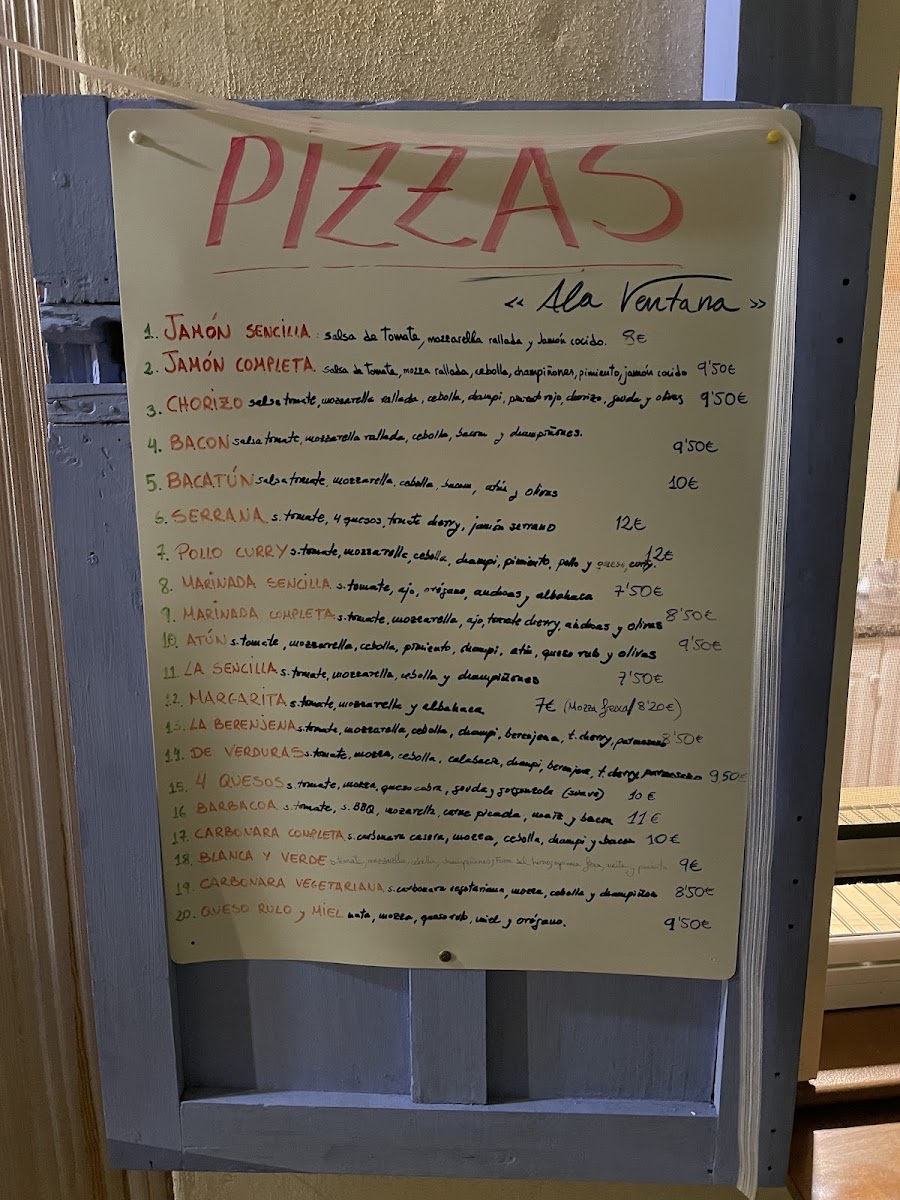 PIZZAS
« A la Ventana »
1. JAMÓN SENCILLA: salsa de tomate, mozzarella rallada y Jamón cocido. 8€
2. JAMÓN COMPLETA. salsa de tomate, mozza rallada, cebolla, champiñones, pimiento, jamón cocido 9'50€
3. CHORIZO salsa tomate, mozzarella rallada, cebolla, champi, pimiento rojo, chorizo, gouda y olivas 9'50€
4. BACON salsa tomate, mozzarella rallada, cebolla, bacon y champiñones. 9'50€
5. BACATÚN salsa tomate, mozzarella, cebolla, bacon, atún y olivas 10€
6. SERRANA s. tomate, 4 quesos, tomate cherry, jamón serrano 12€
7. POLLO CURRY s. tomate, mozzarella, cebolla, champi, pimiento, pollo y queso, curry. 12€
8. MARINADA SENCILLA s. tomate, ajo, orégano, anchoas y albahaca 7'50€
9. MARINADA COMPLETA s. tomate, mozzarella, ajo, tomate cherry, anchoas y olivas 8'50€
10. ATÚN s. tomate, mozzarella, cebolla, pimiento, champi, atún, queso rulo y olivas 9'50€
11. LA SENCILLA s. tomate, mozzarella, cebolla y champiñones 7'50€
12. MARGARITA s. tomate, mozzarella y albahaca 7€ (Mozza fresca/8'20€)
13. LA BERENJENA s. tomate, mozzarella, cebolla, champi, berenjena, t. cherry, parmesano 8'50€
14. DE VERDURAS s. tomate, mozza, cebolla, calabacín, champi, berenjena, t. cherry, parmesano 9,50€
15. 4 QUESOS s. tomate, mozza, queso cabra, gouda y gorgonzola (suave) 10€
16 BARBACOA s. tomate, s. BBQ, mozarella, carne picada, maíz y bacon 11€
17. CARBONARA COMPLETA s. carbonara casera, mozza, cebolla, champi y bacon 10€
18. BLANCA Y VERDE s. tomate, mozzarella, cebolla, champiñones, 9€
19. CARBONARA VEGETARIANA s. carbonara vegetariana, mozza, cebolla y champiñón 8'50€
20. QUESO RULO y MIEL nata, mozza, queso rulo, miel y orégano. 9'50€